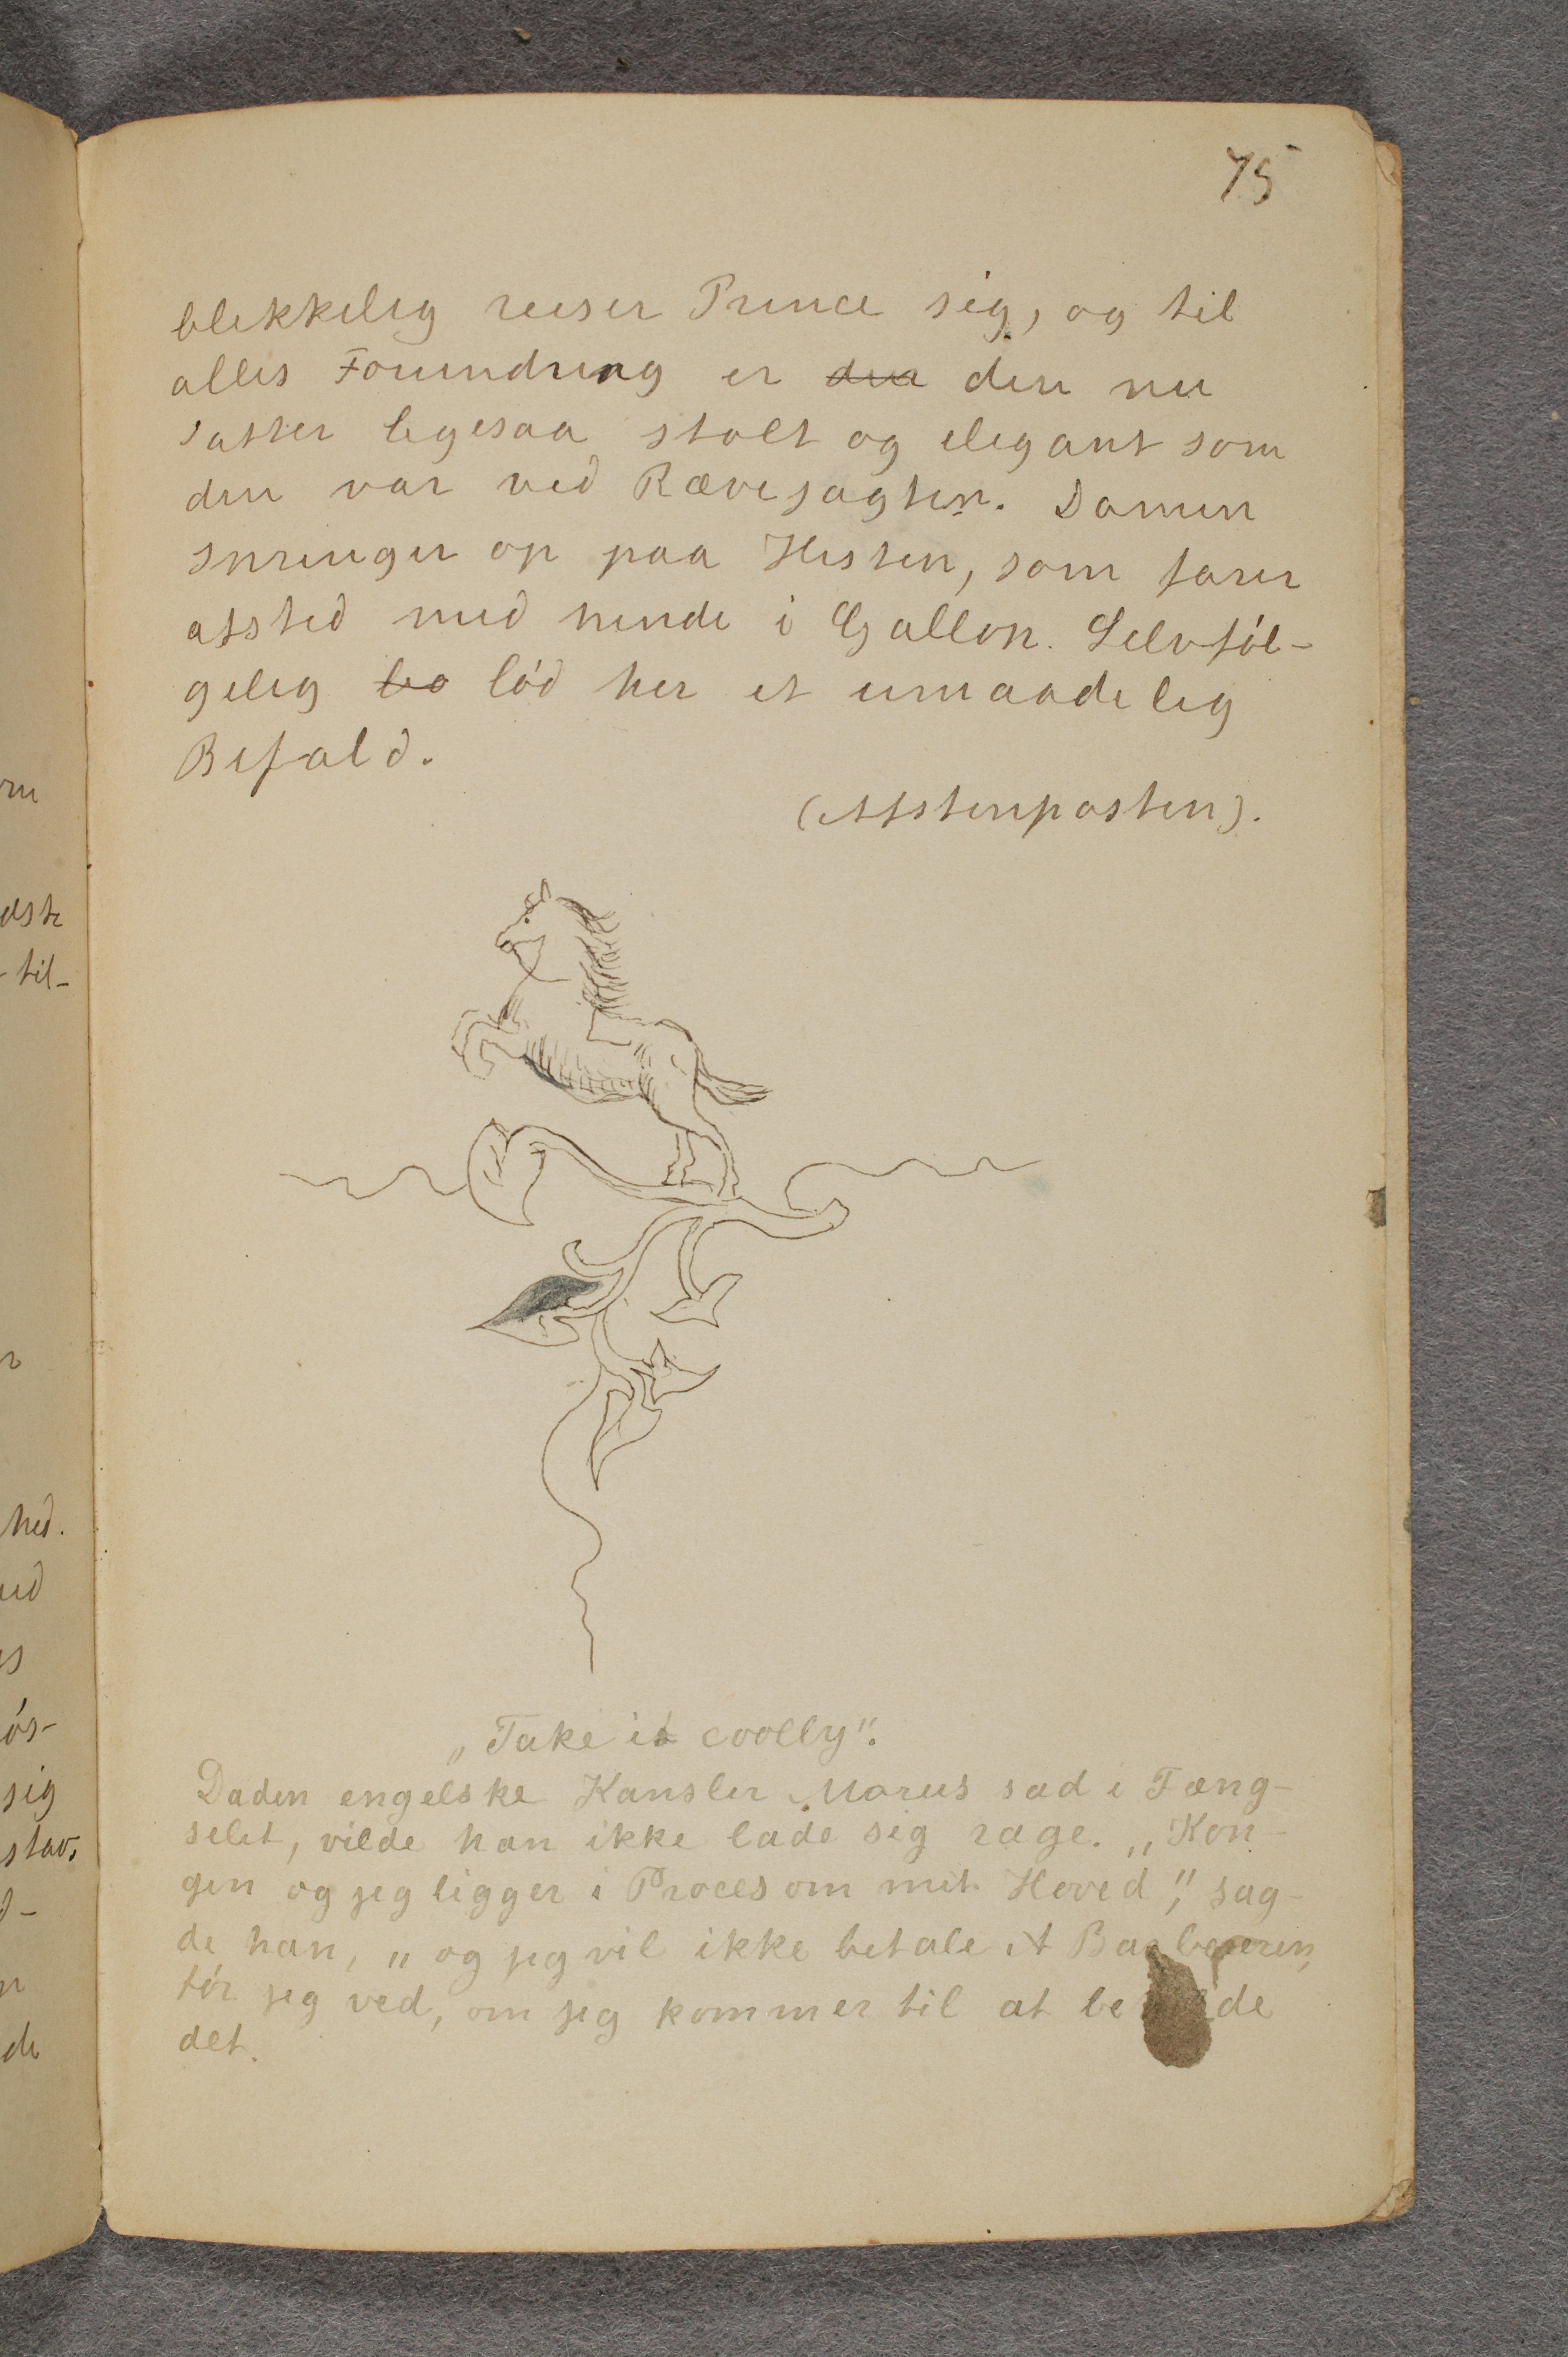 75
blikkelig reiser Prince sig, og til
alles Forundring er den nu
atter ligesaa stolt og elegant som
den var ved Rævejagten. Damen
springer op paa Hesten, som farer
afsted med hende i Gallop. Selvføl-
gelig lød her et umaadelig
Bifald.
(Aftenposten).
„Take it coolly".
Da den engelske Kansler Morus sad i Fæng-
selet, vilde han ikke lade sig rage. „Kon-
gen og jeg ligger i Proces om mit Hoved", sag-
de han, „og jeg vil ikke betale Barberen,
før jeg ved, om jeg kommer til at
det.
rn
dste
- til-
r
hed.
ud
es
øs-
sig
stav,
n
de